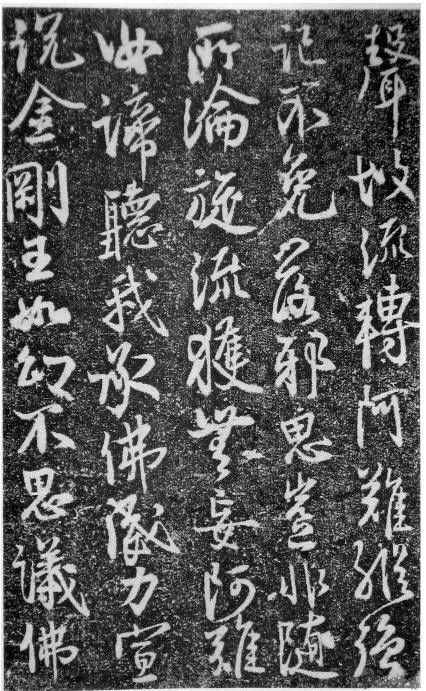 聲故流轉阿難縱強
記不免落邪思豈非隨
所淪旋流獲無妄阿難
汝諦聽我承佛威力宣
說金剛王如幻不思議佛